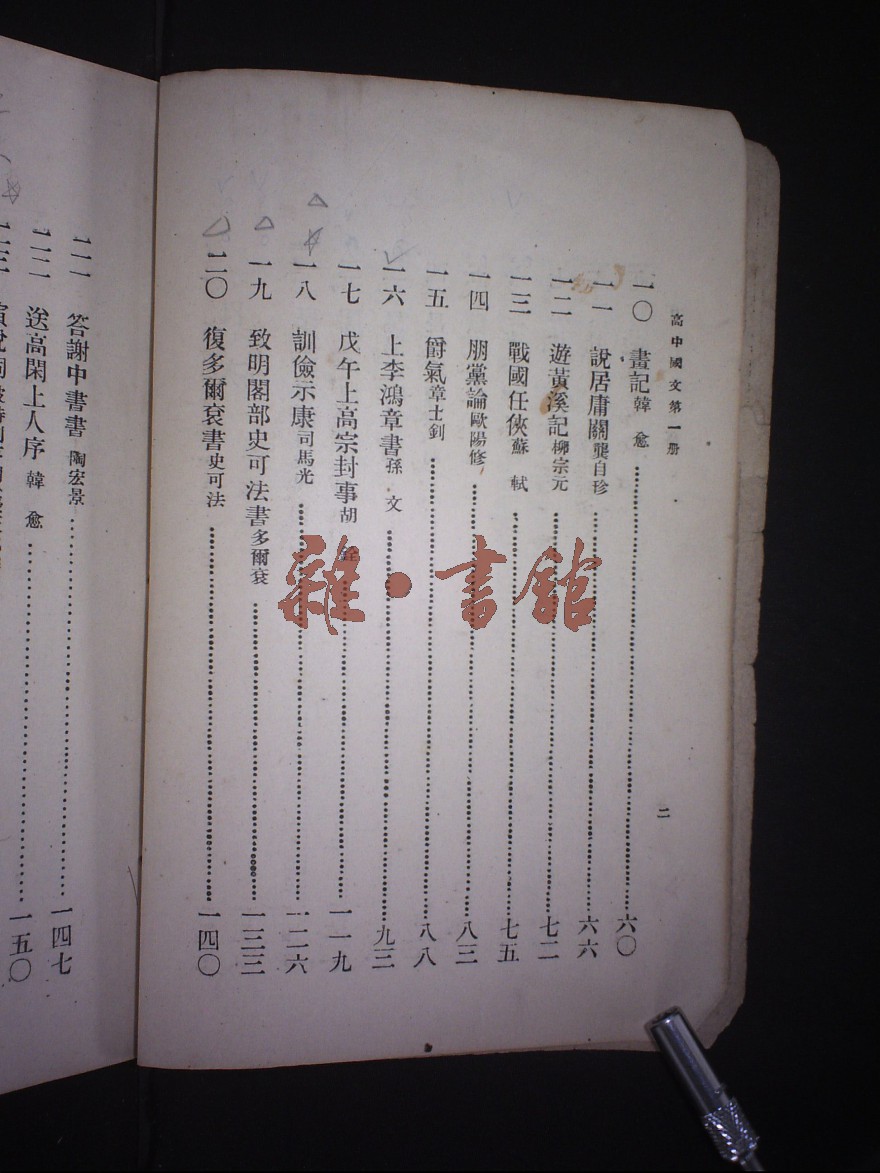 高中國文第一册
二
一〇 畫記 韓愈 六〇
一一 說居庸關 龔自珍 六六
一二 遊黃溪記 柳宗元 七二
一三 戰國任俠 蘇軾 七五
一四 朋黨論 歐陽修 八三
一五 爵氣 章士釗 八八
一六 上李鴻章書 孫文 九三
一七 戊午上高宗封事 胡銓 一一九
一八 訓儉示康 司馬光 一二六
一九 致明閣部史可法書 多爾袞 一三三
二〇 復多爾袞書 史可法 一四〇
二一 答謝中書書 陶宏景 一四七
二二 送高閑上人序 韓愈 一五〇
二三
雜·書館